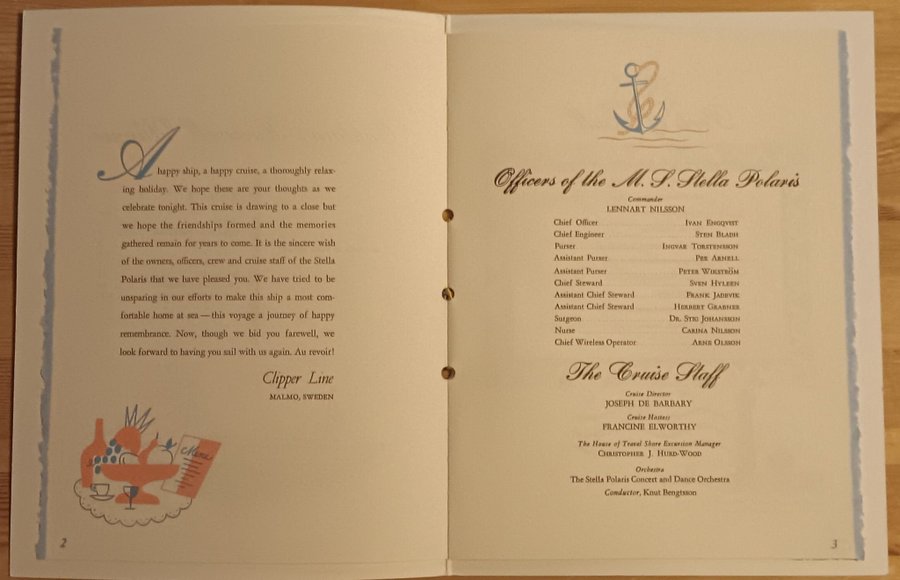 A happy ship, a happy cruise, a thoroughly relax-
ing holiday. We hope these are your thoughts as we
celebrate tonight. This cruise is drawing to a close but
we hope the friendships formed and the memories
gathered remain for years to come. It is the sincere wish
of the owners, officers, crew and cruise staff of the Stella
Polaris that we have pleased you. We have tried to be
unsparing in our efforts to make this ship a most com-
fortable home at sea—this voyage a journey of happy
remembrance. Now, though we bid you farewell, we
look forward to having you sail with us again. Au revoir!
Clipper Line
MALMO, SWEDEN
Menu
2
Officers of the M. S. Stella Polaris
Commander
LENNART NILSSON
Chief Officer IVAN ENGQVIST
Chief Engineer STEN BLADH
Purser INGVAR TORSTENSSON
Assistant Purser PER ARNELL
Assistant Purser PETER WIKSTRÖM
Chief Steward SVEN HYLEEN
Assistant Chief Steward FRANK JADEVIK
Assistant Chief Steward HERBERT GRABNER
Surgeon DR. STIG JOHANSSON
Nurse CARINA NILSSON
Chief Wireless Operator ARNE OLSSON
The Cruise Staff
Cruise Director
JOSEPH DE BARBARY
Cruise Hostess
FRANCINE ELWORTHY
The House of Travel Shore Excursion Manager
CHRISTOPHER J. HURD-WOOD
Orchestra
The Stella Polaris Concert and Dance Orchestra
Conductor, Knut Bengtsson
3